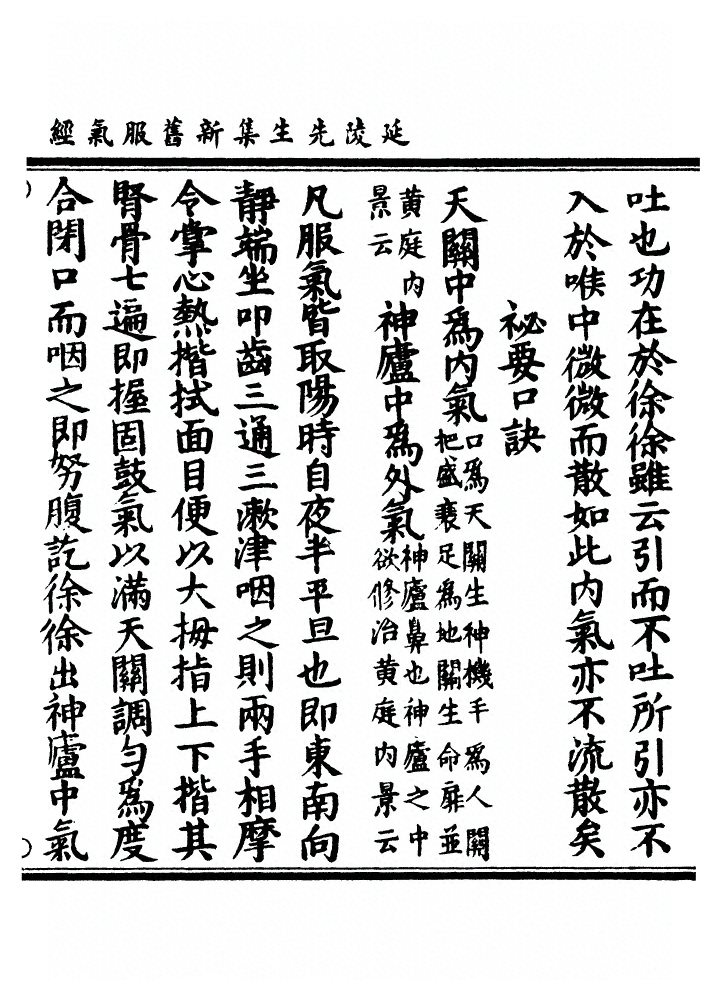 延陵先生集新舊服氣經
吐也功在於徐徐雖云引而不吐所引亦不
入於喉中微微而散如此內氣亦不流散矣
祕要口訣
天關中爲內氣
口爲天關生神機手爲人關
把盛衰足爲地關生命扉並
黃庭內
景云
神廬中爲外氣
神廬鼻也神廬之中
欲修治黃庭內景云
凡服氣皆取陽時自夜半平旦也即東南向
靜端坐叩齒三通三漱津咽之則兩手相摩
令掌心熱揩拭面目便以大拇指上下揩其
腎骨七遍即握固鼓氣以滿天關調勻爲度
合閉口而咽之即努腹訖徐徐出神廬中氣